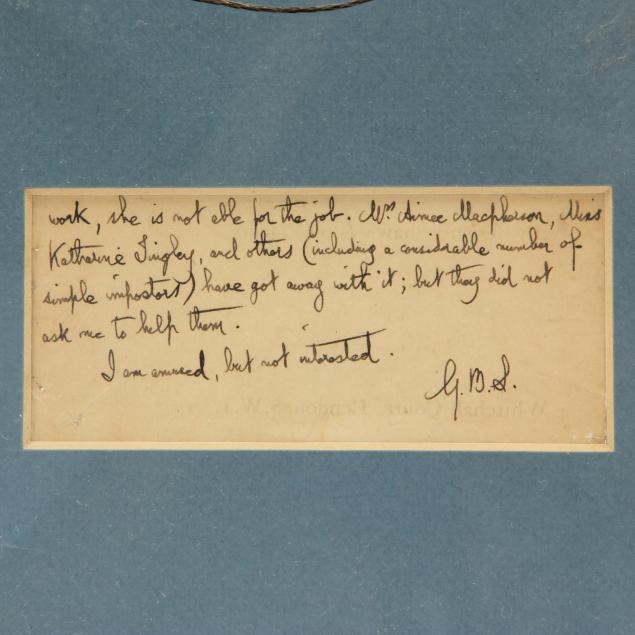 work, she is not able for the job. Mrs Aimee Macpherson, Miss
Katharine Tingley, and others (including a considerable number of
simple impostors) have got away with it; but they did not
ask me to help them.
I am amused, but not interested.
G.B.S.